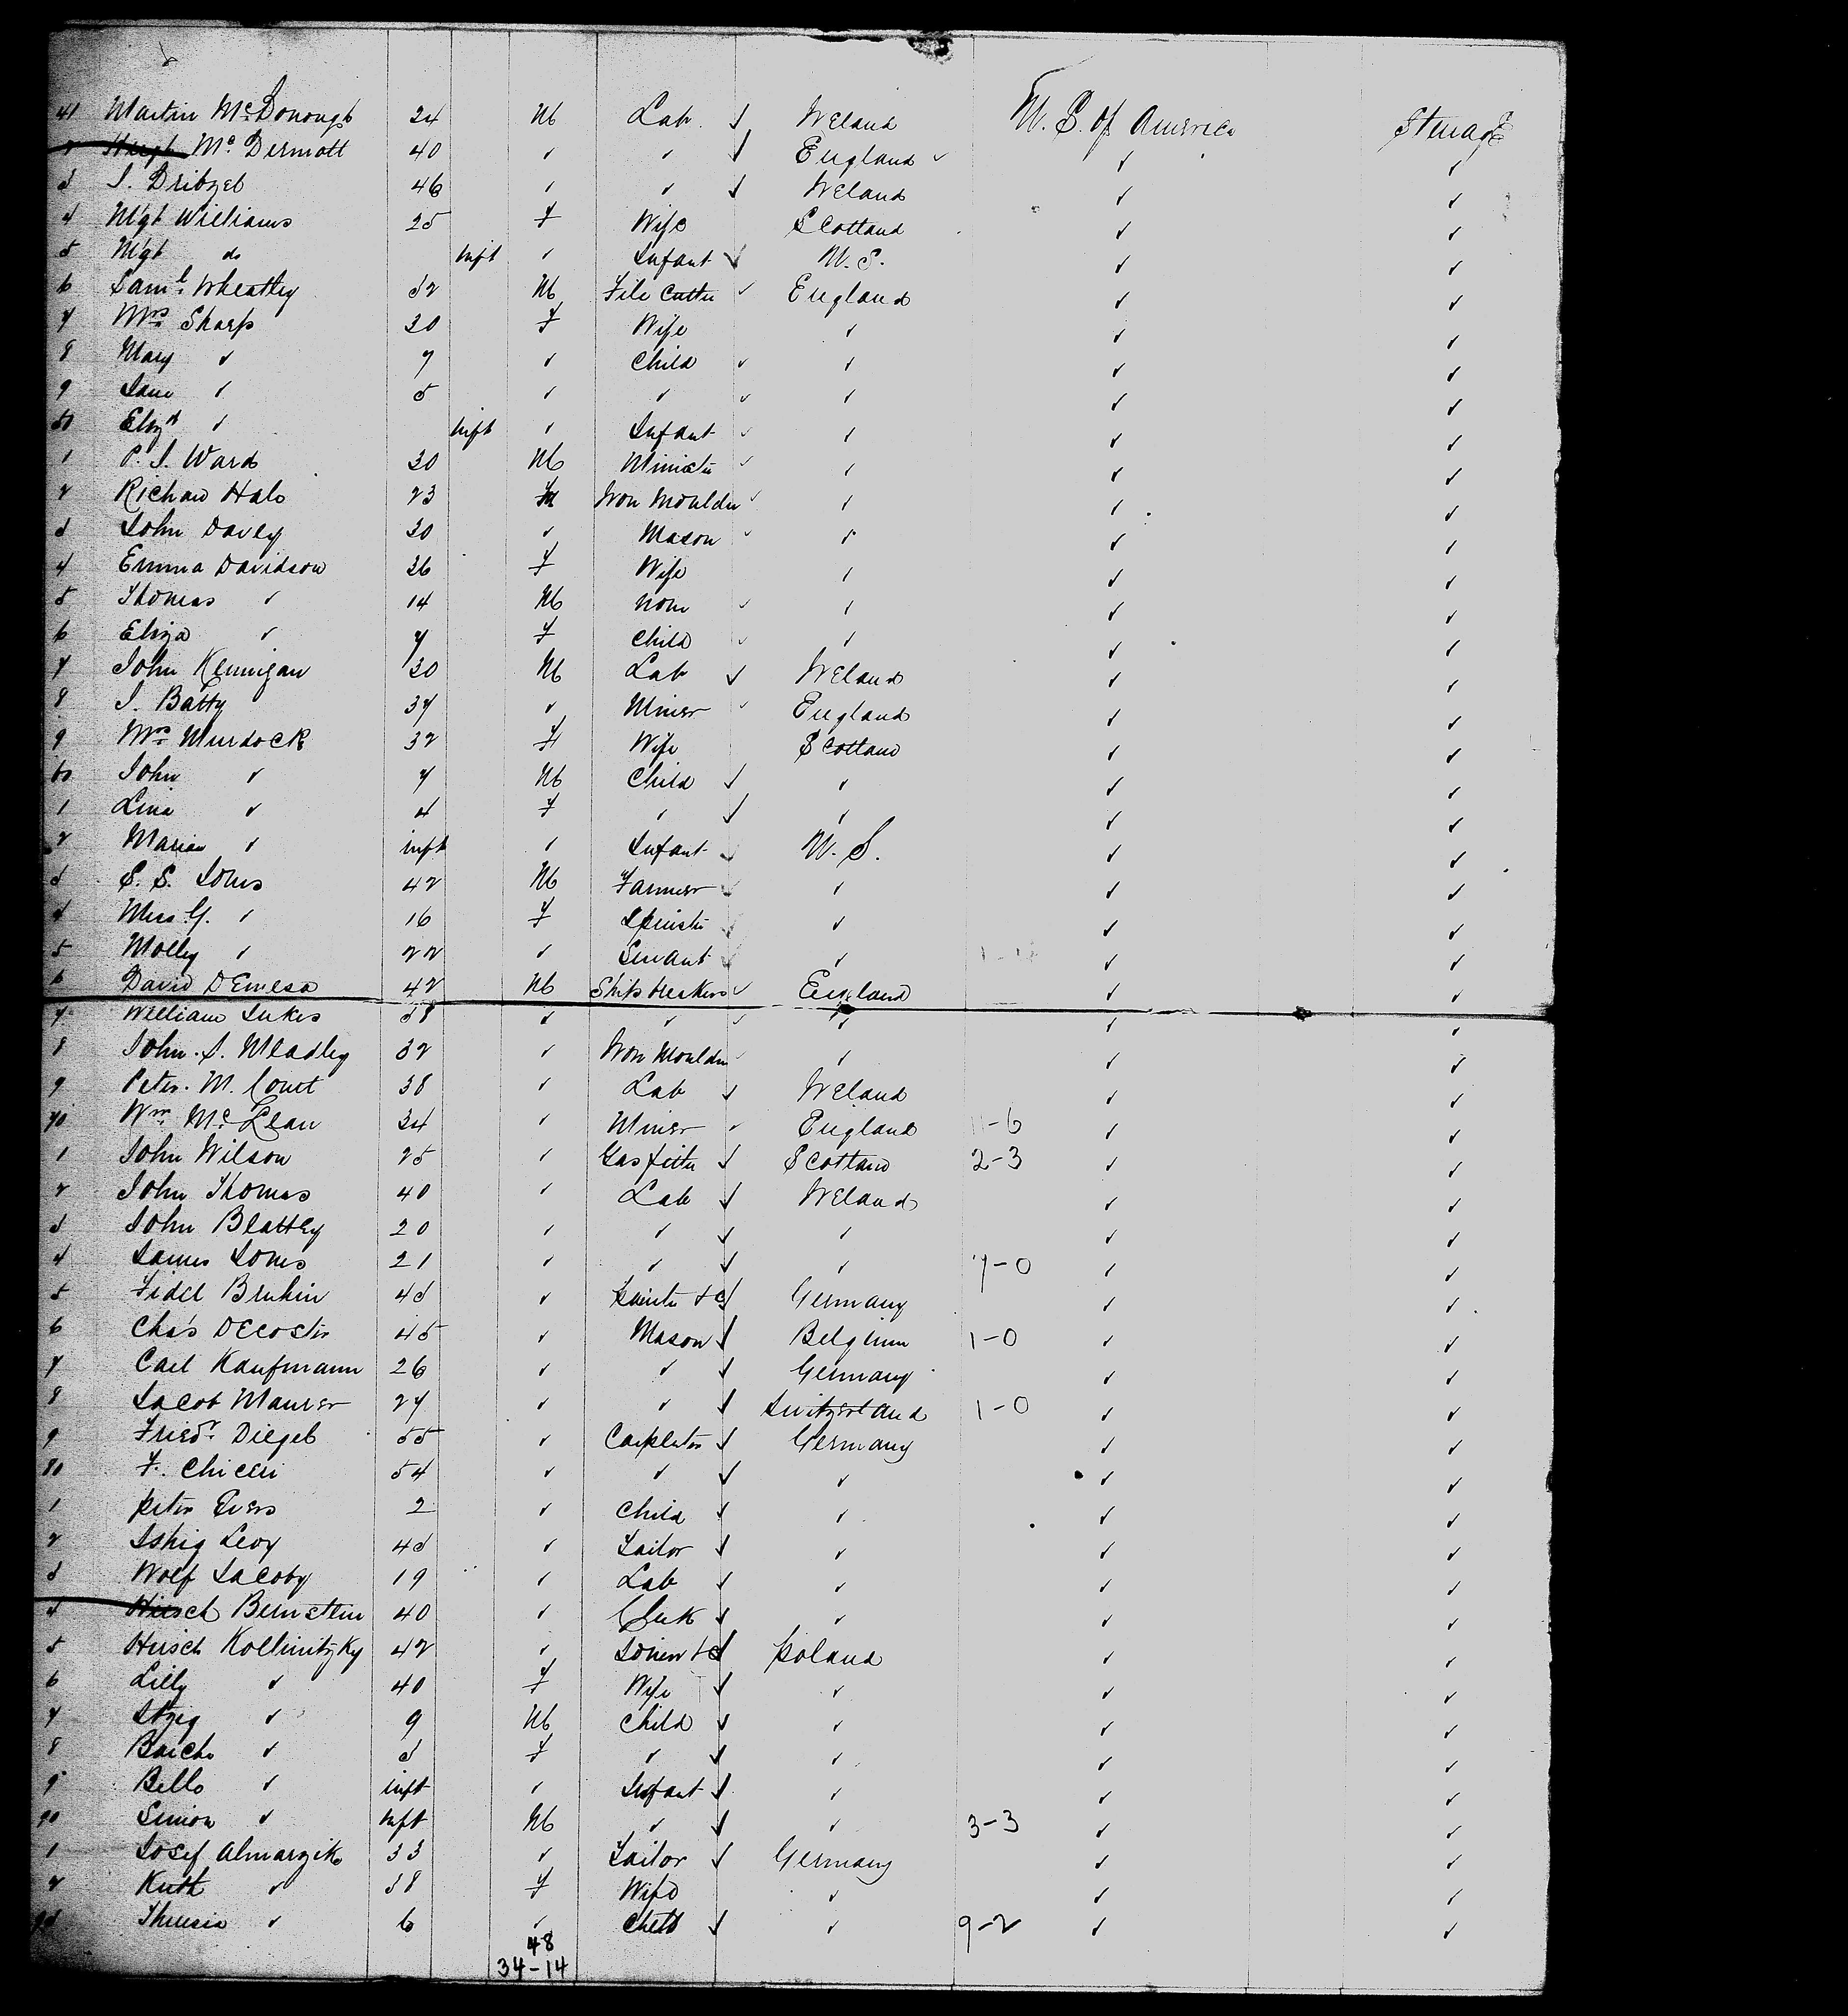 41 Martin McDonough 24 M Lab. ✓ Ireland U. S. of America Steerage
2 Hugh McDermott 40 ✓ ✓ ✓ England ✓ ✓ ✓
3 J. 46 ✓ ✓ ✓ Ireland ✓ ✓
4 Mgt Williams 25 F Wife Scotland ✓ ✓
5 Mgt do Inft ✓ Infant ✓ U. S. ✓ ✓
6 Saml. Wheatley 32 M File Cutter ✓ England ✓ ✓
7 Mrs Sharp 30 F Wife ✓ ✓ ✓
8 Mary ✓ 7 ✓ Child ✓ ✓ ✓ ✓
9 Jane ✓ 5 ✓ ✓ ✓ ✓ ✓ ✓
50 Elizth ✓ Inft ✓ Infant ✓ ✓ ✓ ✓
1 P. J. Ward 30 M Minister ✓ ✓ ✓ ✓
2 Richard Hale 23 M Iron Moulder ✓ ✓ ✓ ✓
3 John Davey 30 ✓ Mason ✓ ✓ ✓ ✓
4 Emma Davidson 36 F Wife ✓ ✓ ✓
5 Thomas ✓ 14 M None ✓ ✓ ✓ ✓
6 Eliza ✓ 7 F Child ✓ ✓ ✓ ✓
7 John Kernigan 30 M Lab ✓ Ireland ✓ ✓
8 J. Batty 37 ✓ Miner ✓ England ✓ ✓
9 Mrs Murdock 32 F Wife Scotland ✓ ✓
60 John ✓ 7 M Child ✓ ✓ ✓ ✓
1 Lina ✓ 4 F ✓ ✓ ✓ ✓ ✓
2 Marian ✓ inft ✓ Infant ✓ U. S. ✓ ✓
3 S. S. Jones 42 M Farmer ✓ ✓ ✓ ✓
4 Miss G. ✓ 16 F Spinster ✓ ✓ ✓ ✓
5 Molley ✓ 22 ✓ Servant ✓ ✓ ✓ ✓
6 David 42 M Shipbreakers ✓ England ✓ ✓
7 William Jukes 38 ✓ ✓ ✓ ✓ ✓ ✓
8 John. S. Meadley 32 ✓ Iron Moulder ✓ ✓ ✓ ✓
9 Peter. M. Court 38 ✓ Lab ✓ Ireland ✓ ✓
70 Wm. McLean 34 ✓ Miner ✓ England 11-6 ✓ ✓
1 John Wilson 25 ✓ Gasfitter ✓ Scotland 2-3 ✓ ✓
2 John Thomas 40 ✓ Lab ✓ Ireland ✓ ✓
3 John Blattley 20 ✓ ✓ ✓ ✓ ✓ ✓
4 James Jones 21 ✓ ✓ ✓ ✓ 7-0 ✓ ✓
5 Fidel Bruhin 43 ✓ Painter &c ✓ Germany ✓ ✓
6 Chas Decoster 45 ✓ Mason ✓ Belgium 1-0 ✓ ✓
7 Carl Kaufmann 26 ✓ ✓ ✓ Germany ✓ ✓
8 Jacob Maurer 27 ✓ ✓ ✓ Switzerland 1-0 ✓ ✓
9 Friedr. Diegel 55 ✓ Carpenter ✓ Germany ✓ ✓
80 F. Chiceri 54 ✓ ✓ ✓ ✓ ✓ ✓
1 Peter Evers 2 ✓ Child ✓ ✓ ✓ ✓
2 Ishig Levy 43 ✓ Tailor ✓ ✓ ✓ ✓
3 Wolf Jacoby 19 ✓ Lab ✓ ✓ ✓ ✓
4 Hirsch Bernstein 40 ✓ Clerk ✓ ✓ ✓ ✓
5 Hirsch Kollinitzky 42 ✓ Joiner &c ✓ Poland ✓ ✓
6 Lilly ✓ 40 F Wife ✓ ✓ ✓ ✓
7 Itzig ✓ 9 M Child ✓ ✓ ✓ ✓
8 Baiche ✓ 3 F ✓ ✓ ✓ ✓ ✓
9 Belle ✓ inft ✓ Infant ✓ ✓ ✓ ✓
90 Simon ✓ Inft M ✓ ✓ ✓ 3-3 ✓ ✓
1 Josef Almarzik 33 ✓ Tailor ✓ Germany ✓ ✓
2 Kath ✓ 38 F Wife ✓ ✓ ✓
93 Theresia ✓ 6 ✓ Child ✓ ✓ 9-2 ✓ ✓
48
34-14